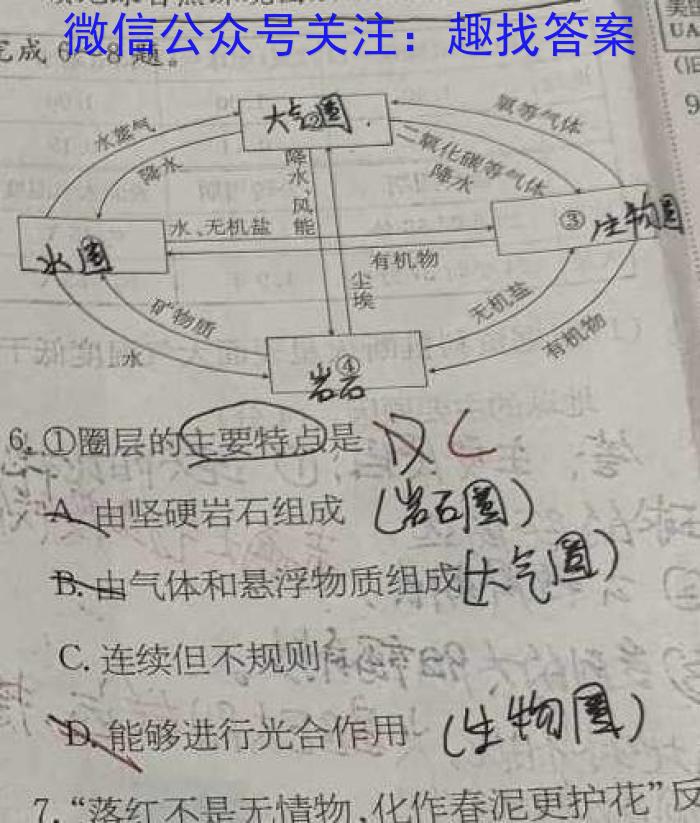 微信公众号关注：趣找答案
完成6~8题。
大气圈
氧等气体
水蒸气
降水
二氧化碳等气体
降水
降水、风能
水、无机盐
③生物圈
水圈
有机物
尘埃
矿物质
无机盐
水
④
岩石
有机物
6. ①圈层的主要特点是 D C
A. 由坚硬岩石组成 (岩石圈)
B. 由气体和悬浮物质组成(大气圈)
C. 连续但不规则
D. 能够进行光合作用 (生物圈)
7. “落红不是无情物,化作春泥更护花”反